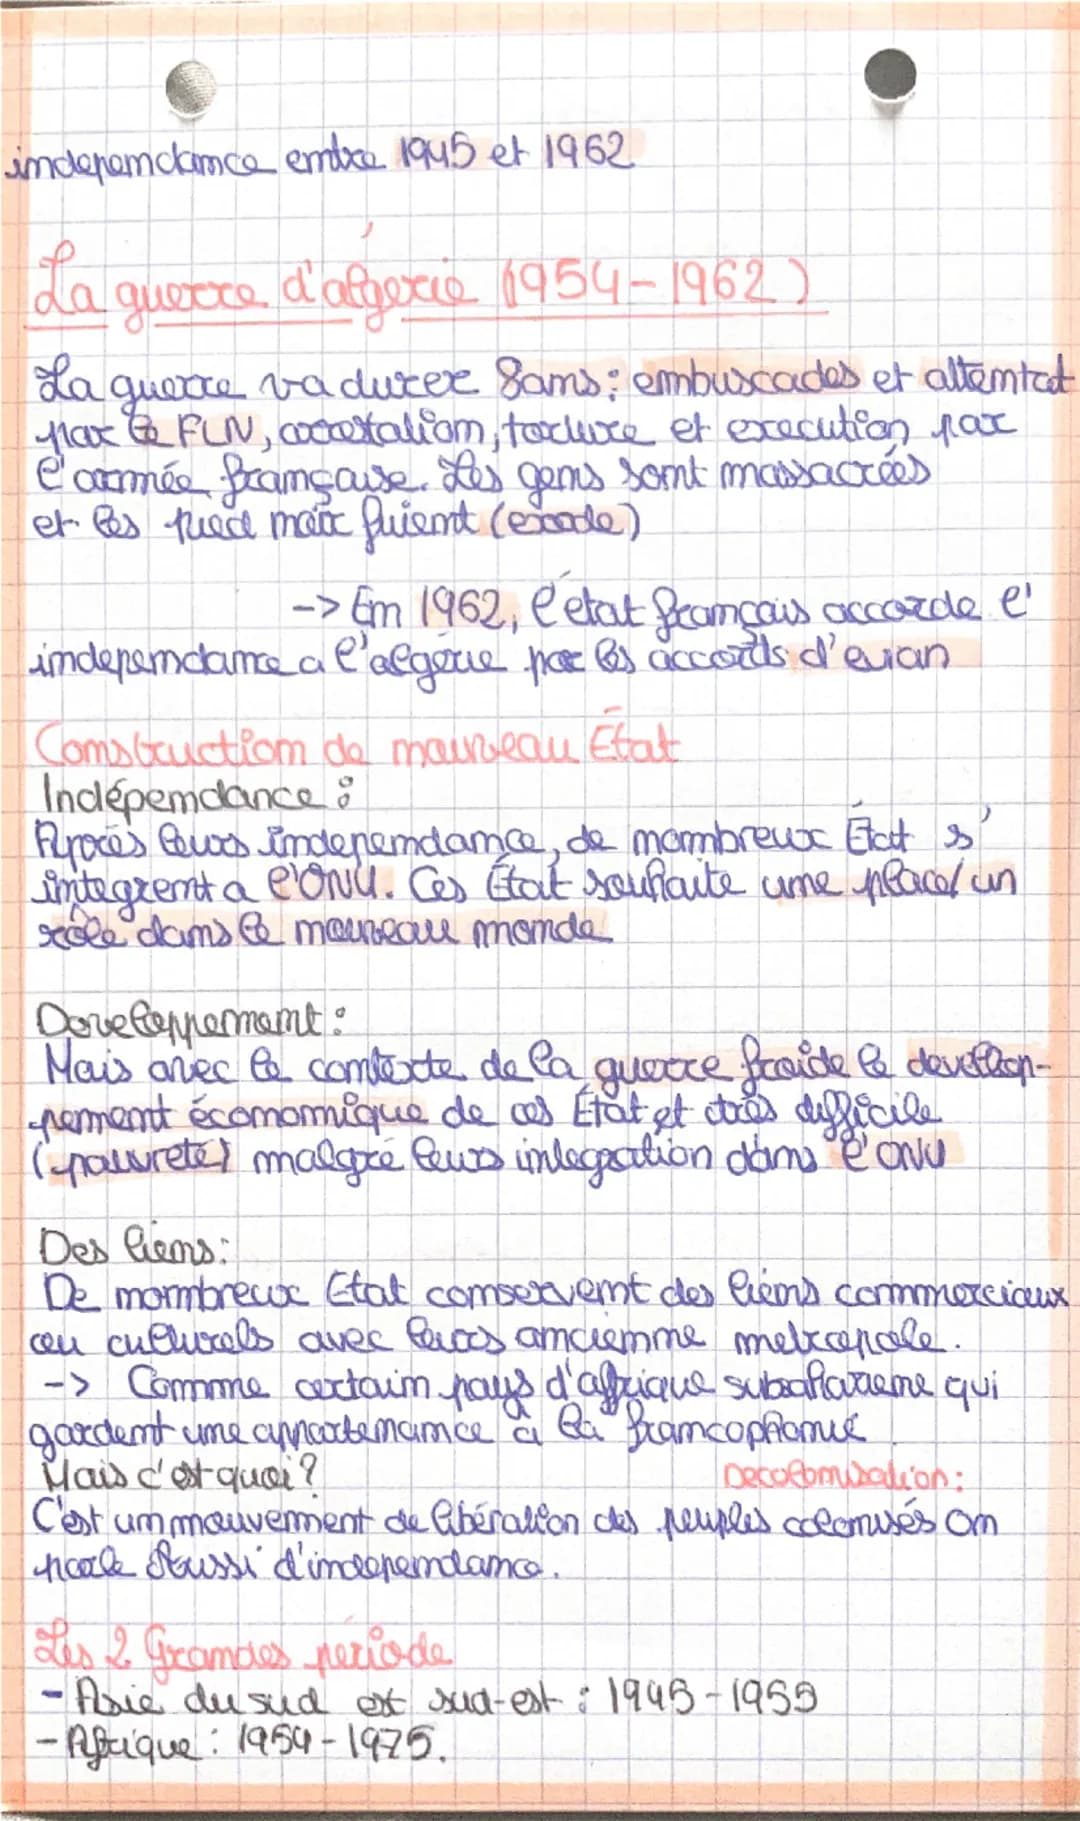 independance entre 1945 et 1962
La guerre d'algerie (1954-1962)
La guerre va durer 8ans: embuscades et attentat
par le FLN, arrestation, torture et execution par
l'armée française. Les gens sont massacrés
et les pied noir fuient (exode)
-> En 1962, l'état français accorde l'
independance a l'algérie par les accords d'evian
Construction de nouveau État
Indépendance :
Après leurs independance, de nombreux État s'
integrent a l'ONU. Ces État souhaite une place/un
rôle dans le nouveau monde
Developpement :
Mais avec le contexte de la guerre froide le develop-
-pement économique de ces État et très difficile
(pauvreté) malgré leurs integration dans l'ONU
Des liens:
De nombreux Etat conservent des liens commerciaux
ou culturels avec leurs ancienne metropole.
-> Comme certain pays d'afrique subsaharienne qui
gardent une appartenance à la francophonie
Mais c'est quoi? Decolonisation:
C'est un mouvement de libération des peuples colonisés on
parle aussi d'independance.
Les 2 Grandes periode
- Asie du sud et sud-est : 1945-1955
- Afrique : 1954-1975.